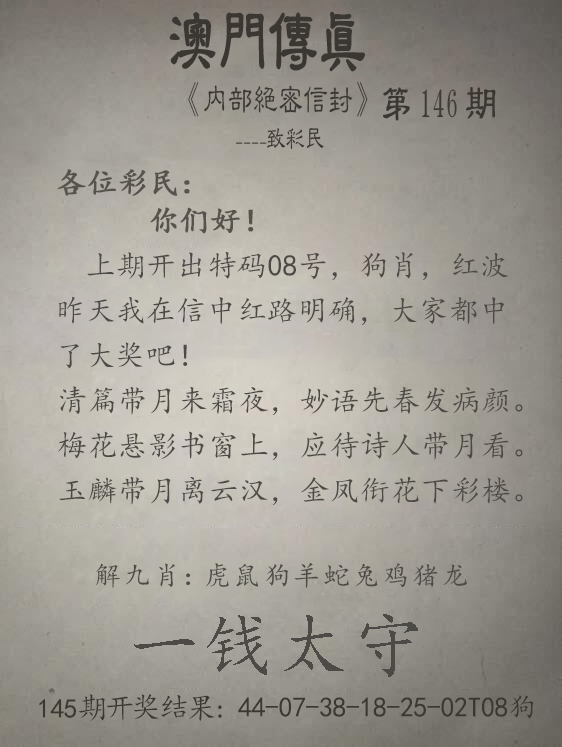 澳門傳眞
《内部絕密信封》第146期
----致彩民
各位彩民：
你们好！
上期开出特码08号，狗肖，红波
昨天我在信中红路明确，大家都中
了大奖吧！
清篇带月来霜夜，妙语先春发病颜。
梅花悬影书窗上，应待诗人带月看。
玉麟带月离云汉，金凤衔花下彩楼。
解九肖：虎鼠狗羊蛇兔鸡猪龙
一钱太守
145期开奖结果：44-07-38-18-25-02T08狗